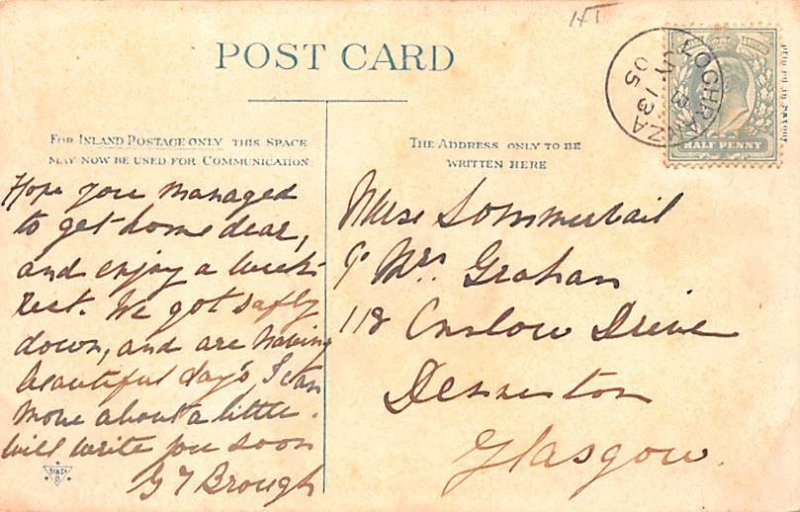 HT
POST CARD
FOR INLAND POSTAGE ONLY THIS SPACE
MAY NOW BE USED FOR COMMUNICATION
THE ADDRESS ONLY TO BE
WRITTEN HERE
LOCHRANZA
B
JY 13
05
HALF PENNY
Hope you managed
to get home dear,
and enjoy a week's
rest. We got safly
down, and are having
beautiful day's, I can
move about a little.
will write you soon
G T Brough
Nurse Sommervail
c/o Mrs. Graham
118 Onslow Drive
Denniston
Glasgow.